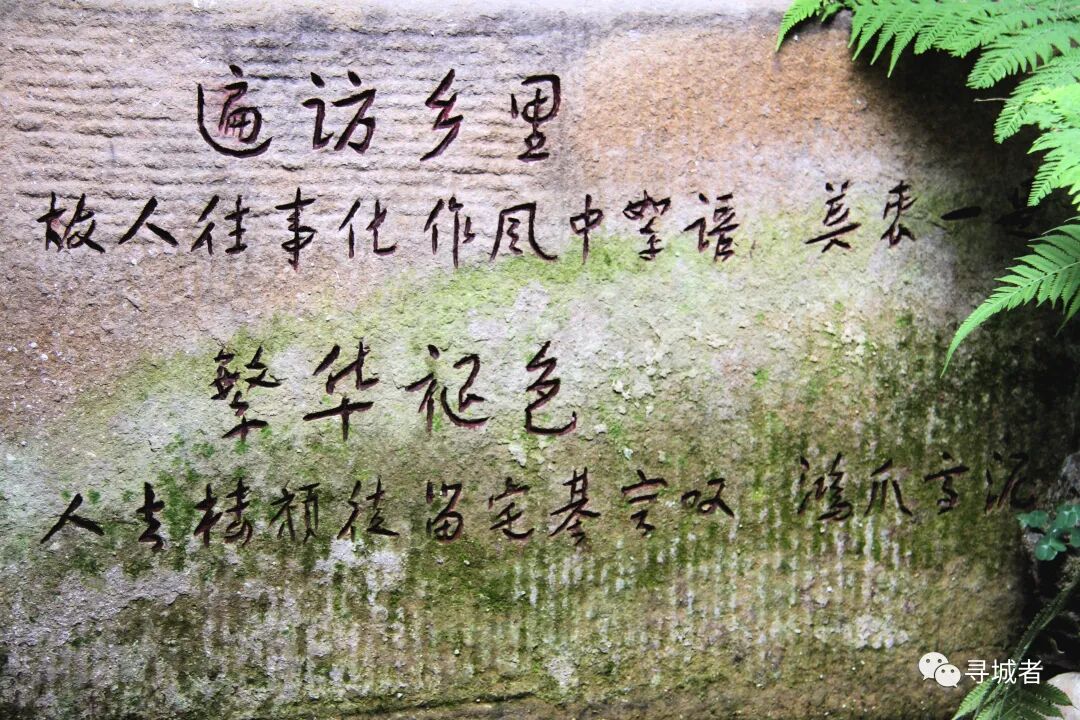 遍访乡里
故人往事化作风中絮语 莫衷一是
繁华褪色
人去楼颓徒留宅基空叹 鸿爪雪泥
寻城者